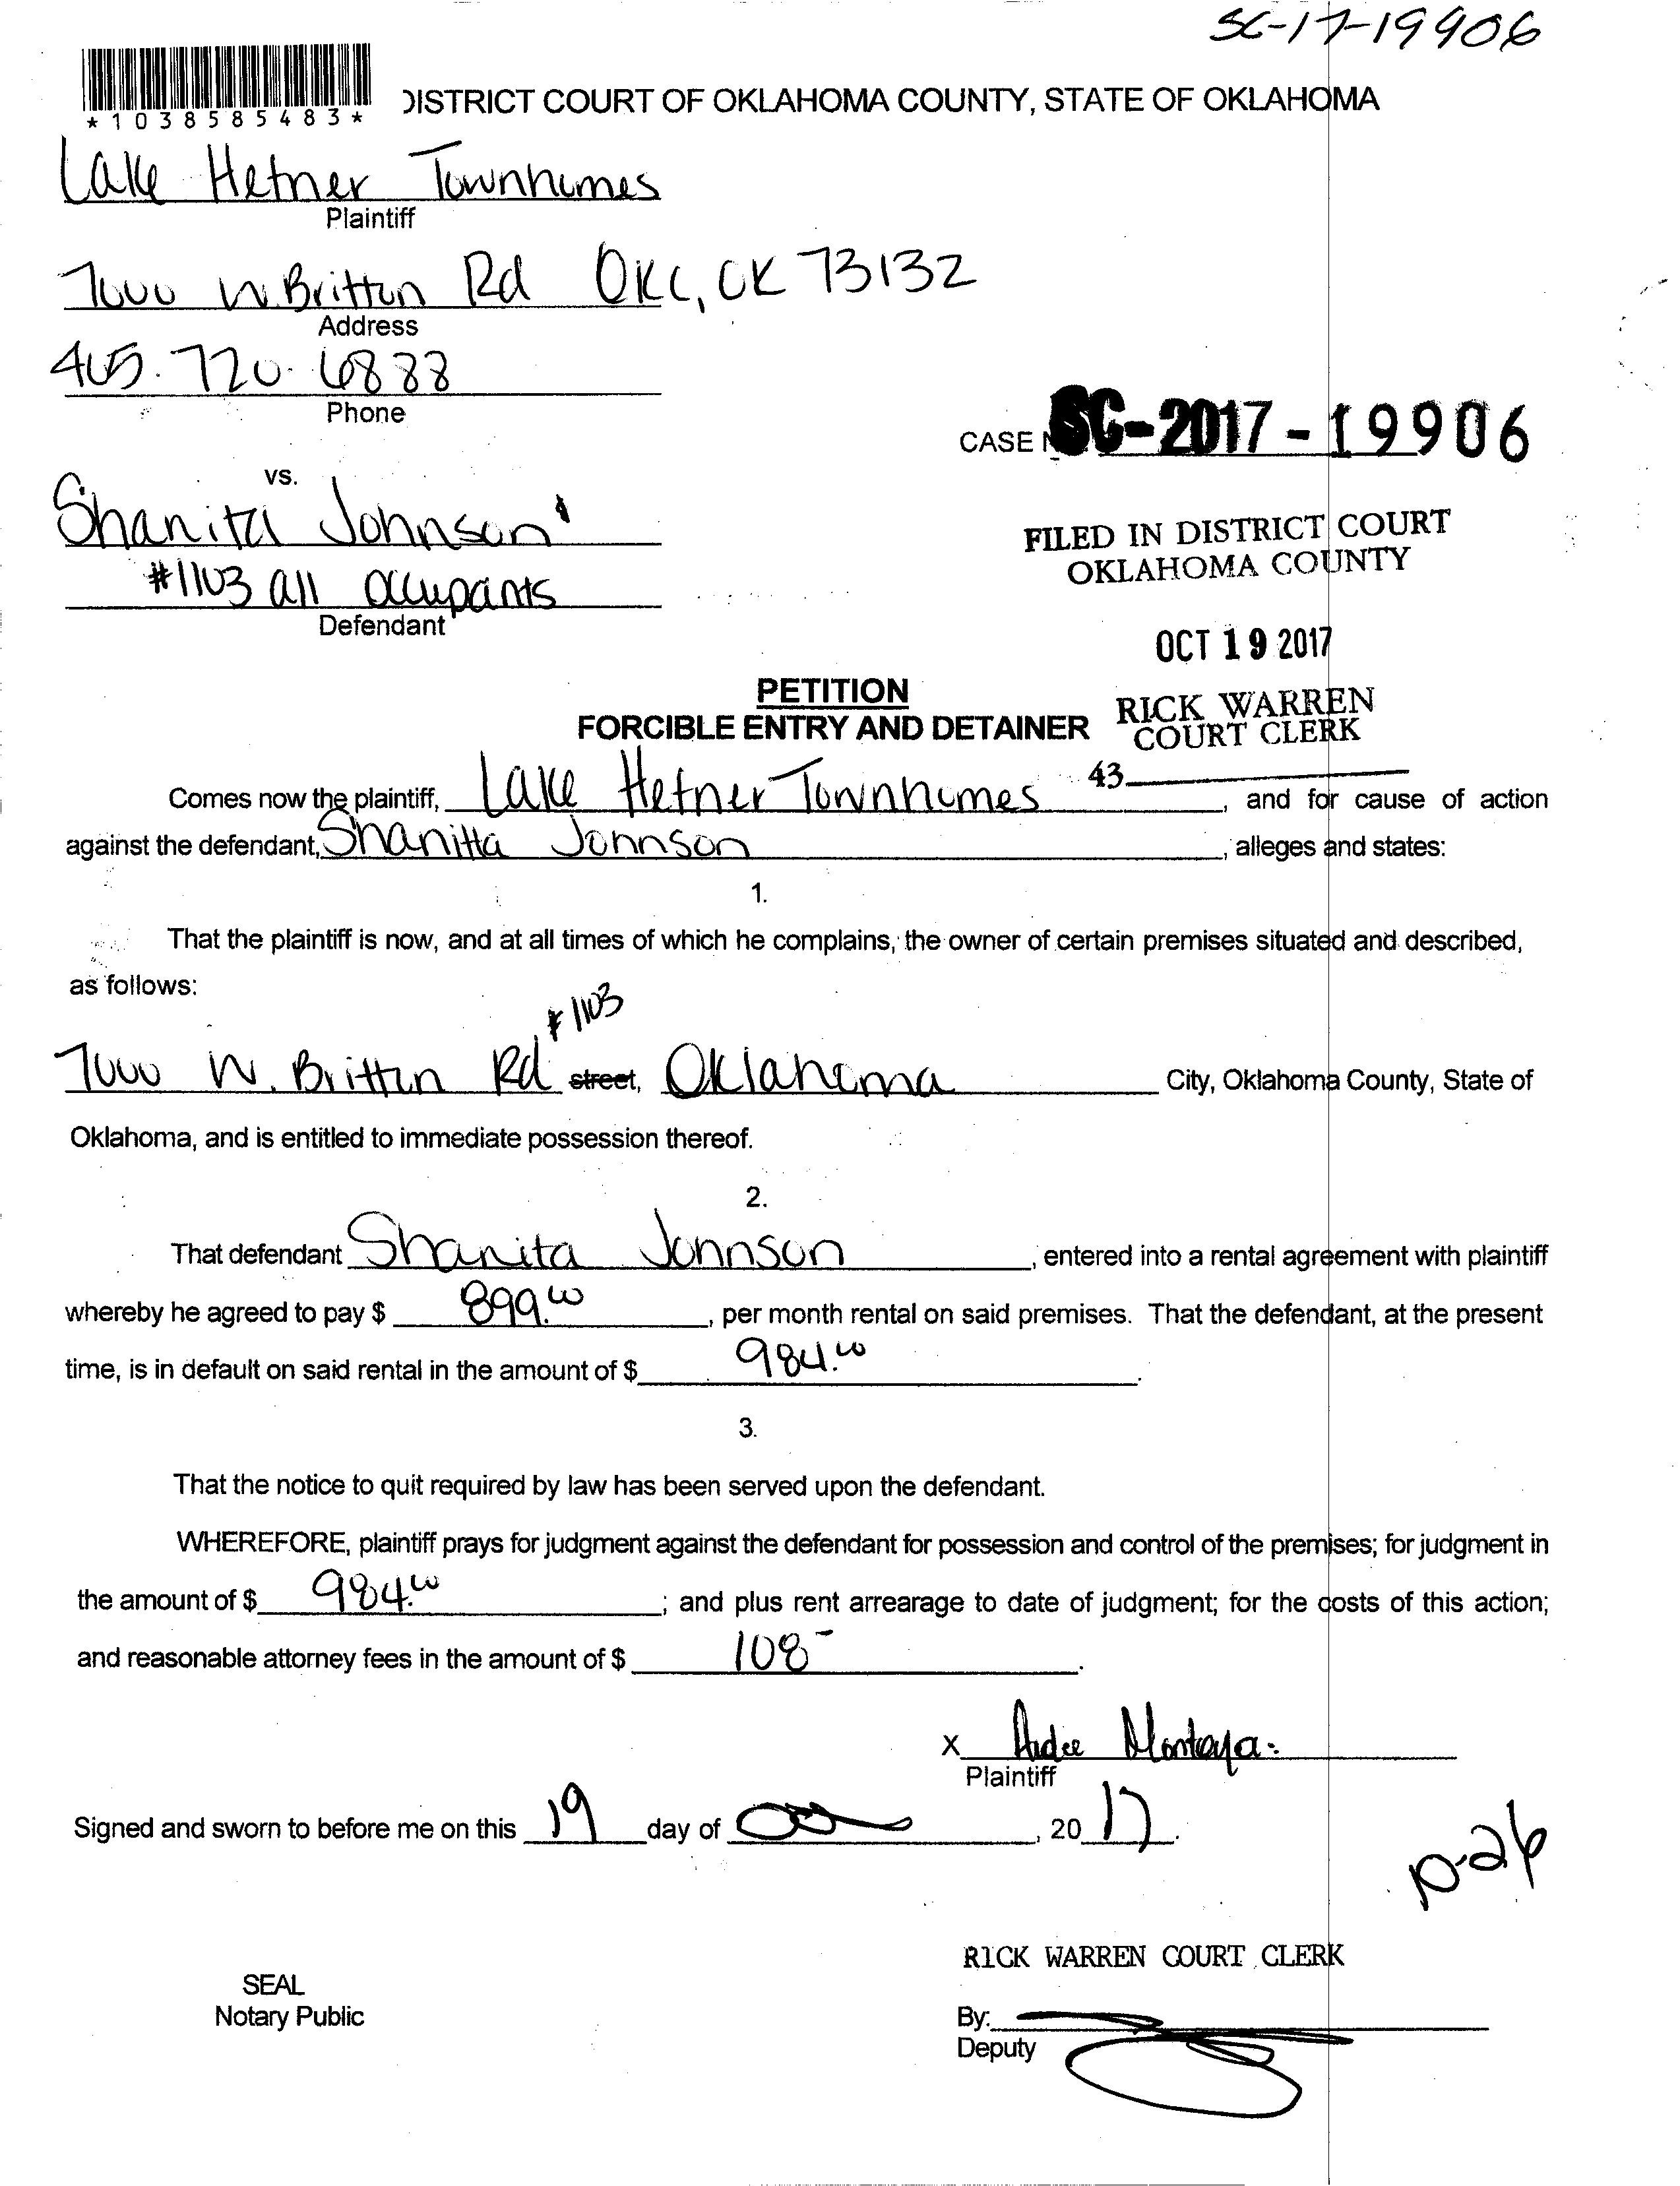 SC-17-19906
*1038585483*
DISTRICT COURT OF OKLAHOMA COUNTY, STATE OF OKLAHOMA
Lake Hefner Townhomes
Plaintiff
7000 W. Britton Rd OKC, OK 73132
Address
405.720.6888
Phone
CASE N SC-2017-19906
vs.
Shanita Johnson
#1103 all occupants
Defendant
FILED IN DISTRICT COURT
OKLAHOMA COUNTY
OCT 19 2017
PETITION
FORCIBLE ENTRY AND DETAINER
RICK WARREN
COURT CLERK
43
Comes now the plaintiff, Lake Hefner Townhomes, and for cause of action
against the defendant, Shanitta Johnson, alleges and states:
1.
That the plaintiff is now, and at all times of which he complains, the owner of certain premises situated and described,
as follows:
#1103
7000 W. Britton Rd street, Oklahoma City, Oklahoma County, State of
Oklahoma, and is entitled to immediate possession thereof.
2.
That defendant Shanita Johnson, entered into a rental agreement with plaintiff
whereby he agreed to pay $ 899.00, per month rental on said premises. That the defendant, at the present
time, is in default on said rental in the amount of $ 984.00.
3.
That the notice to quit required by law has been served upon the defendant.
WHEREFORE, plaintiff prays for judgment against the defendant for possession and control of the premises; for judgment in
the amount of $ 984.00; and plus rent arrearage to date of judgment; for the costs of this action;
and reasonable attorney fees in the amount of $ 108-.
X Montoya
Plaintiff
Signed and sworn to before me on this 19 day of , 2017.
10-26
RICK WARREN COURT CLERK
SEAL
Notary Public
By:
Deputy